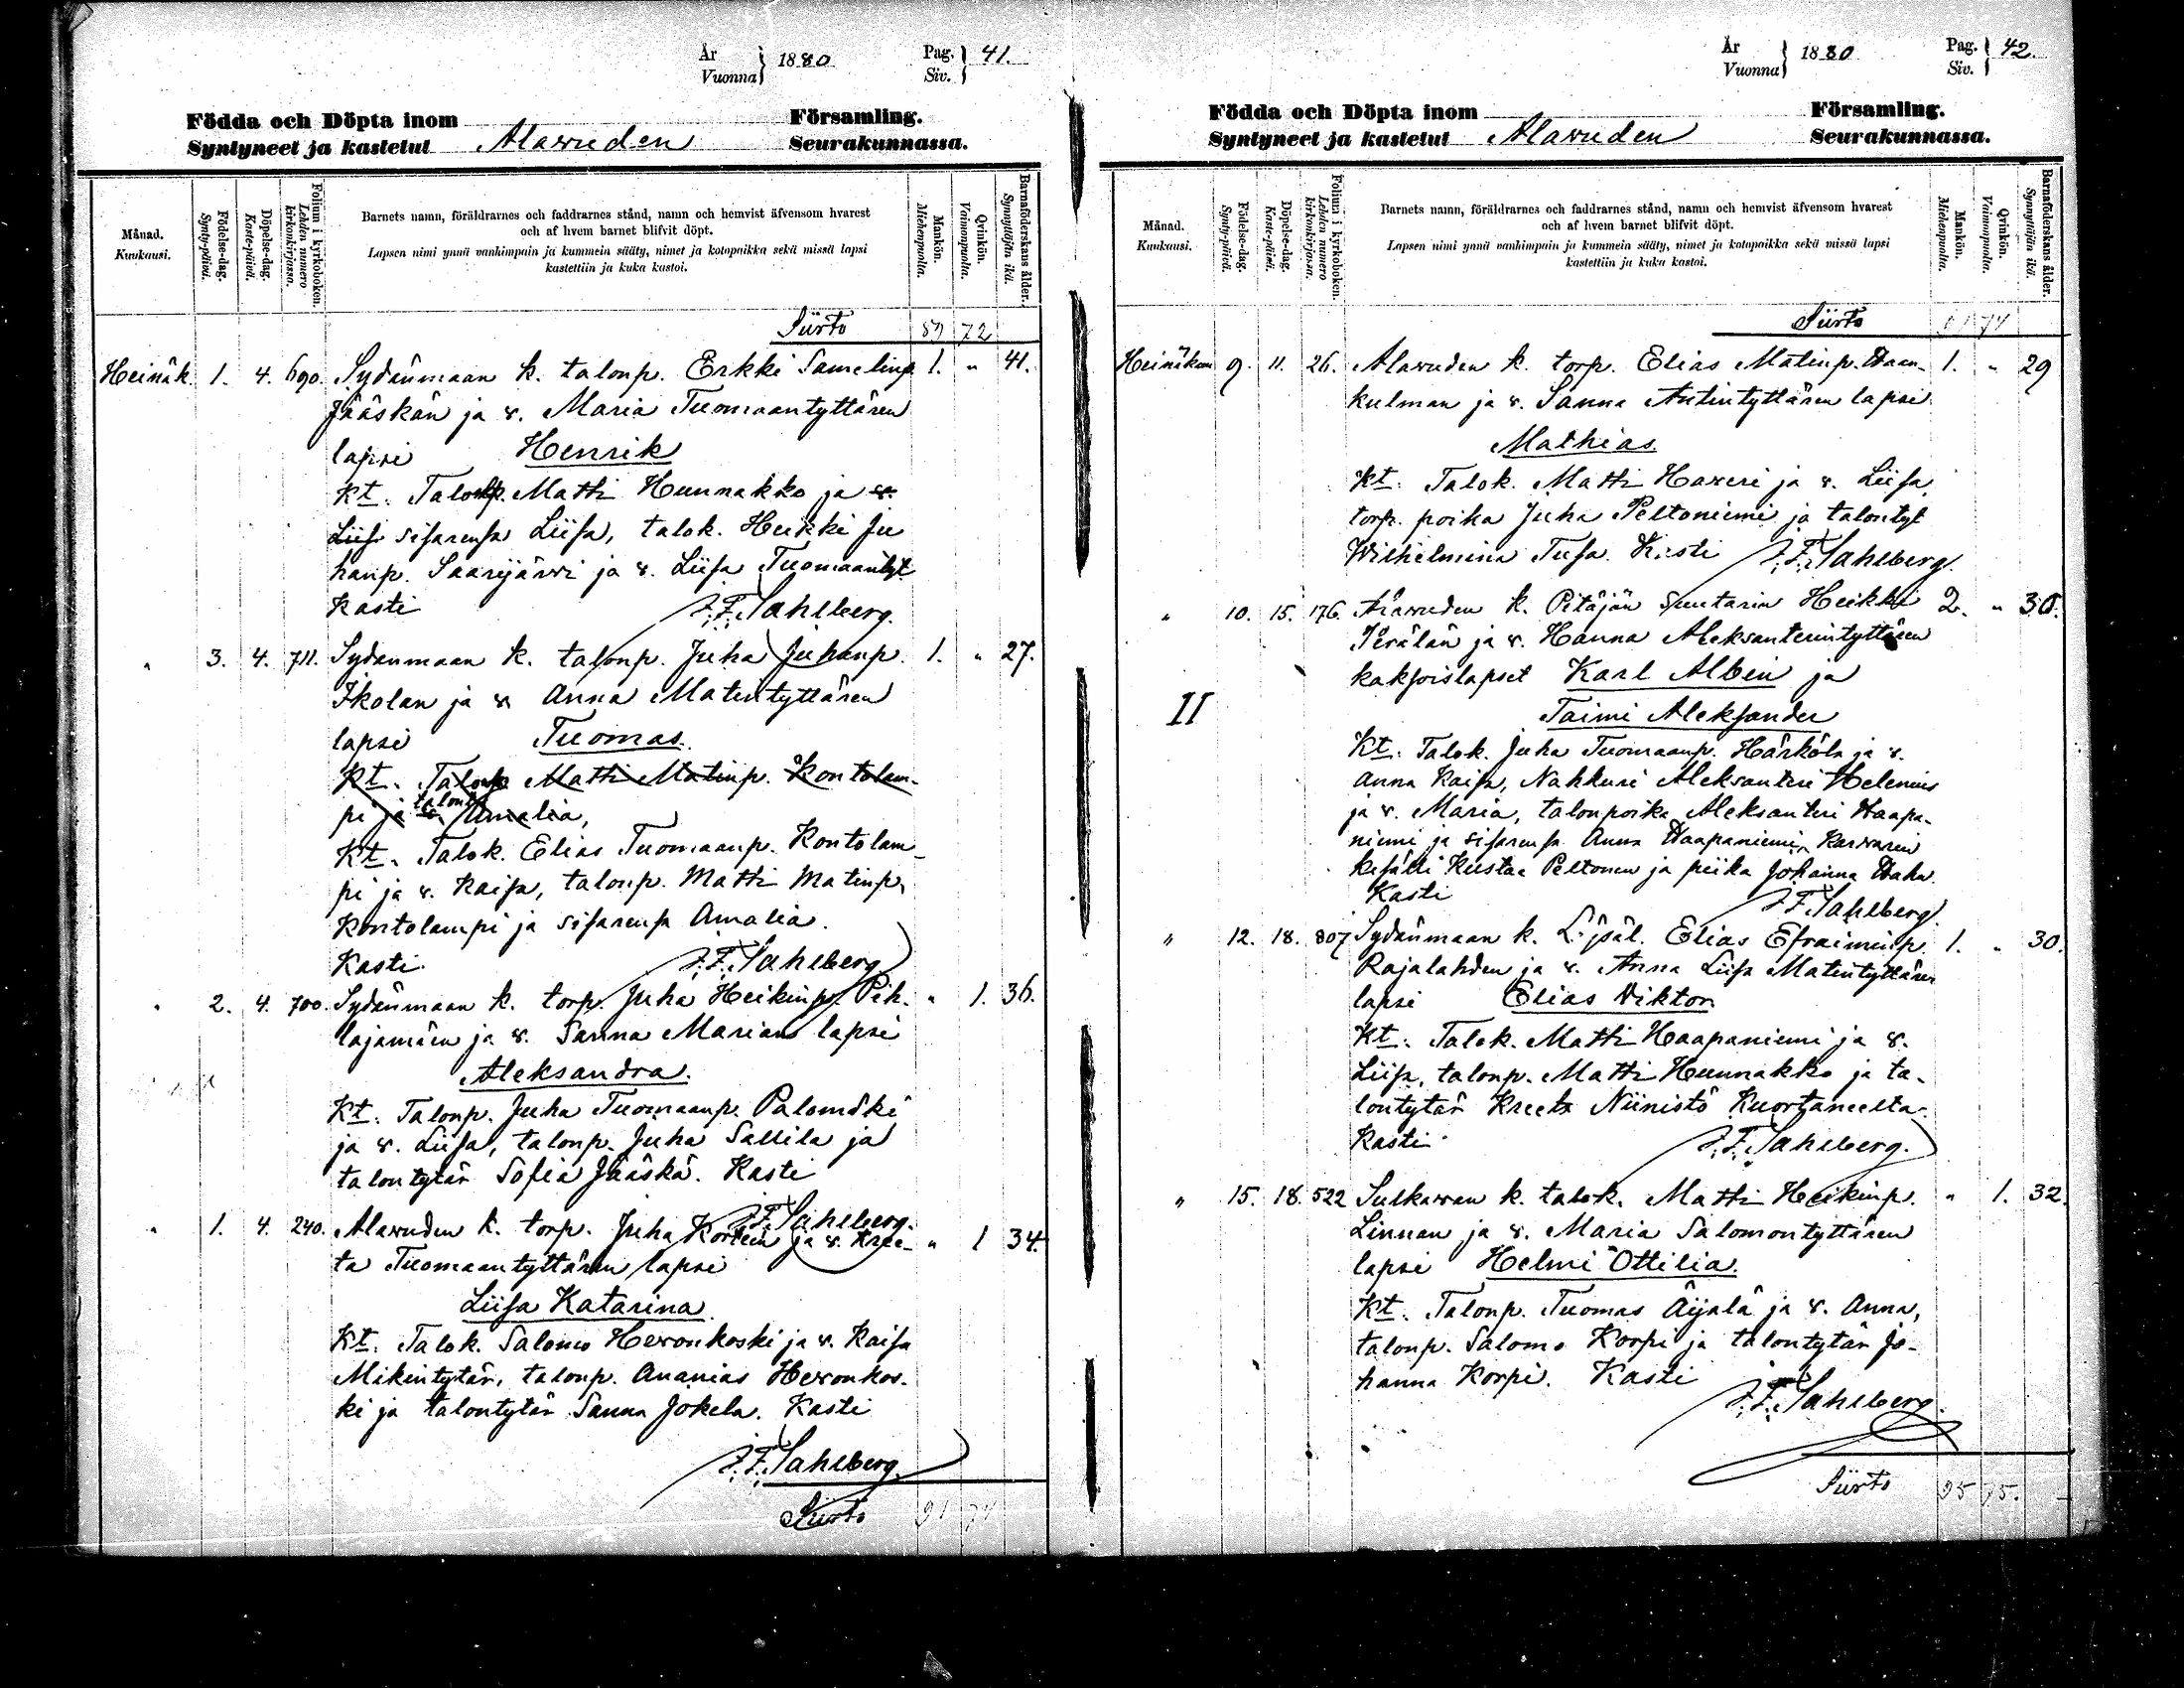 År Vuonna 1880 Pag. Siv. 41.
Födda och Döpta inom Församling.
Syntyneet ja kastetut Alavuden Seurakunnassa.
Månad. Kuukausi.
Födelse-dag. Synty-päivä.
Döpelse-dag. Kaste-päivä.
Folium i kyrkoboken. Lehden numero kirkonkirjassa.
Barnets namn, föräldrarnes och faddrarnes stånd, namn och hemvist äfvensom hvarest
och af hvem barnet blifvit döpt.
Lapsen nimi ynnä vanhimpain ja kummein sääty, nimet ja kotopaikka sekä missä lapsi
kastettiin ja kuka kastoi.
Mankön. Miehenpuolta.
Qvinkön. Vaimonpuolta.
Barnaföderskans ålder. Synnyttäjän ikä.
Siirto 89 72
Heinäk. 1. 4. 690. Sydänmaan k. talonp. Erkki Samelinp. 1. " 41.
Jääskän ja v. Maria Tuomaantyttären
lapsi Henrik
Kt. Talonp. Matti Hunnakko ja v.
Liisa sisarensa Liisa, talok. Heikki Ju
hanp. Saarijärvi ja v. Liisa Tuomaantyt
Kasti J. F. Sahlberg.
" 3. 4. 711. Sydänmaan k. talonp. Juha Juhanp. 1. " 27.
Ikolan ja v. Anna Matintyttären
lapsi Tuomas.
Kt. Talonp. Matti Matinp. Kontolam-
pi ja v. Amalia,
Kt. Talok. Elias Tuomaanp. Kontolam-
pi ja v. Kaisa, talonp. Matti Matinp.
Kontolampi ja sisarensa Amalia.
Kasti. J. F. Sahlberg
" 2. 4. 700. Sydänmaan k. torp. Juha Heikinp. Pih- " 1. 36.
lajamäen ja v. Sanna Marian lapsi
Aleksandra.
Kt. Talonp. Juha Tuomaanp. Palomäki
ja v. Liisa, talonp. Juha Sallila ja
talontytär Sofia Jääskä. Kasti
J. F. Sahlberg.
" 1. 4. 240. Alavuden k. torp. Juha Kortein ja v. Kree- " 1 34.
ta Tuomaantyttären lapsi
Liisa Katarina
Kt. Talok. Salomo Hevonkoski ja v. Kaisa
Mikintytär, talonp. Ananias Hevonkos-
ki ja talontytär Sanna Jokela. Kasti
J. F. Sahlberg.
Siirto 91 74
År Vuonna 1880 Pag. Siv. 42.
Födda och Döpta inom Församling.
Syntyneet ja kastetut Alavuden Seurakunnassa.
Månad. Kuukausi.
Födelse-dag. Synty-päivä.
Döpelse-dag. Kaste-päivä.
Folium i kyrkoboken. Lehden numero kirkonkirjassa.
Barnets namn, föräldrarnes och faddrarnes stånd, namn och hemvist äfvensom hvarest
och af hvem barnet blifvit döpt.
Lapsen nimi ynnä vanhimpain ja kummein sääty, nimet ja kotopaikka sekä missä lapsi
kastettiin ja kuka kastoi.
Mankön. Miehenpuolta.
Qvinkön. Vaimonpuolta.
Barnaföderskans ålder. Synnyttäjän ikä.
Siirto 91 74
Heinäkuu 9. 11. 26. Alavuden k. torp. Elias Matinp. Haan- 1. " 29
kulman ja v. Sanna Antintyttären lapsi
Mathias.
Kt. Talok. Matti Haveri ja v. Liisa,
torp. poika Juha Peltoniemi ja talontyt
Wilhelmina Tusa. Kasti J. F. Sahlberg.
" 10. 15. 176. Alavuden k. Pitäjän suutarin Heikki 2. "
Perälän ja v. Hanna Aleksanterintyttären
kaksoislapset Karl Albin ja
II Taimi Aleksander
Kt. Talok. Juha Tuomaanp. Härkölä ja v.
Anna Kaisa, Nahkuri Aleksanteri Helenius
ja v. Maria, talonpoika Aleksanteri Haapa-
niemi ja sisarensa Anna Haapaniemi, Karvarin
kisälli Kustaa Peltonen ja piika Johanna Haka.
Kasti J. F. Sahlberg.
" 12. 18. 807 Sydänmaan k. Elias Efraiminp. 1. " 30.
Rajalahden ja v. Anna Liisa Matintyttären
lapsi Elias Viktor
Kt. Talok. Matti Haapaniemi ja v.
Liisa, talonp. Matti Hunnakko ja ta-
lontytär Kreeta Niinistö Kuortaneelta.
Kasti. J. F. Sahlberg.
" 15. 18. 522 Sulkavan k. talok. Matti Heikinp. " 1. 32.
Linnan ja v. Maria Salomontyttären
lapsi Helmi Ottilia.
Kt. Talonp. Tuomas Äijälä ja v. Anna,
talonp. Salomo Korpi ja talontytär Jo-
hanna Korpi. Kasti
J. F. Sahlberg.
Siirto 95 75.